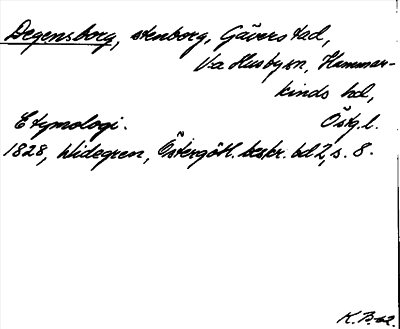 Degensborg, stenborg, Gäverstad,
V:a Husby sn, Hammar-
kinds hd,
Etymologi. Östg.l.
1828, Widegren, Östergötl. beskr. bd 2, s. 8.
K.B-62.